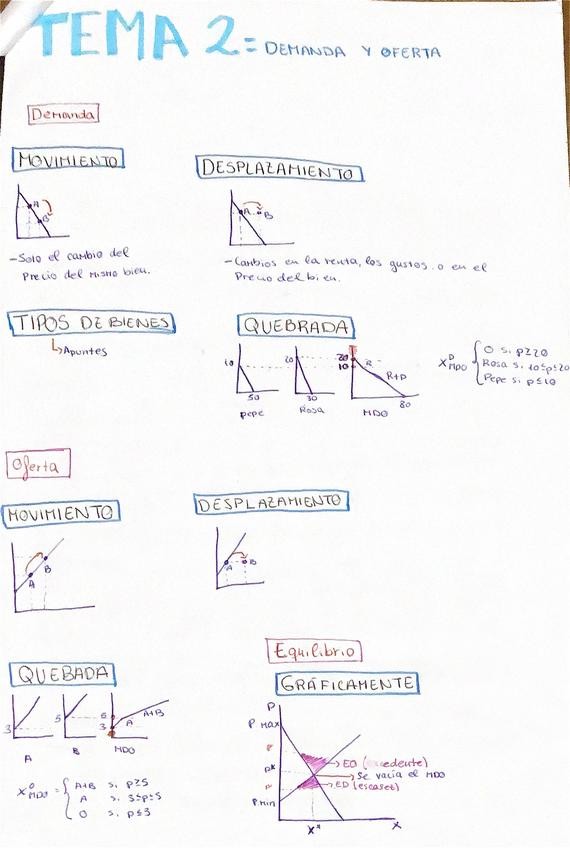 TEMA 2 = DEMANDA Y OFERTA
Demanda
MOVIMIENTO
A
B
-Solo el cambio del
Precio del mismo bien.
DESPLAZAMIENTO
A
B
-Cambios en la renta, los gustos o en el
Precio del bien.
TIPOS DE BIENES
Apuntes
QUEBRADA
10
50
Pepe
20
30
Rosa
20
10
R
R+P
80
MDO
X D MDO
0 si p≥20
Rosa si 10≤p≤20
Pepe si p≤10
Oferta
MOVIMIENTO
A
B
DESPLAZAMIENTO
A
B
QUEBADA
3
A
5
B
5
3
A
A+B
MDO
X O MDO =
A+B si p≥5
A si 3≤p≤5
0 si p≤3
Equilibrio
GRÁFICAMENTE
P
P max
P
P*
P
P min
EO (excedente)
Se vacía el MDO
ED (escasez)
X*
X